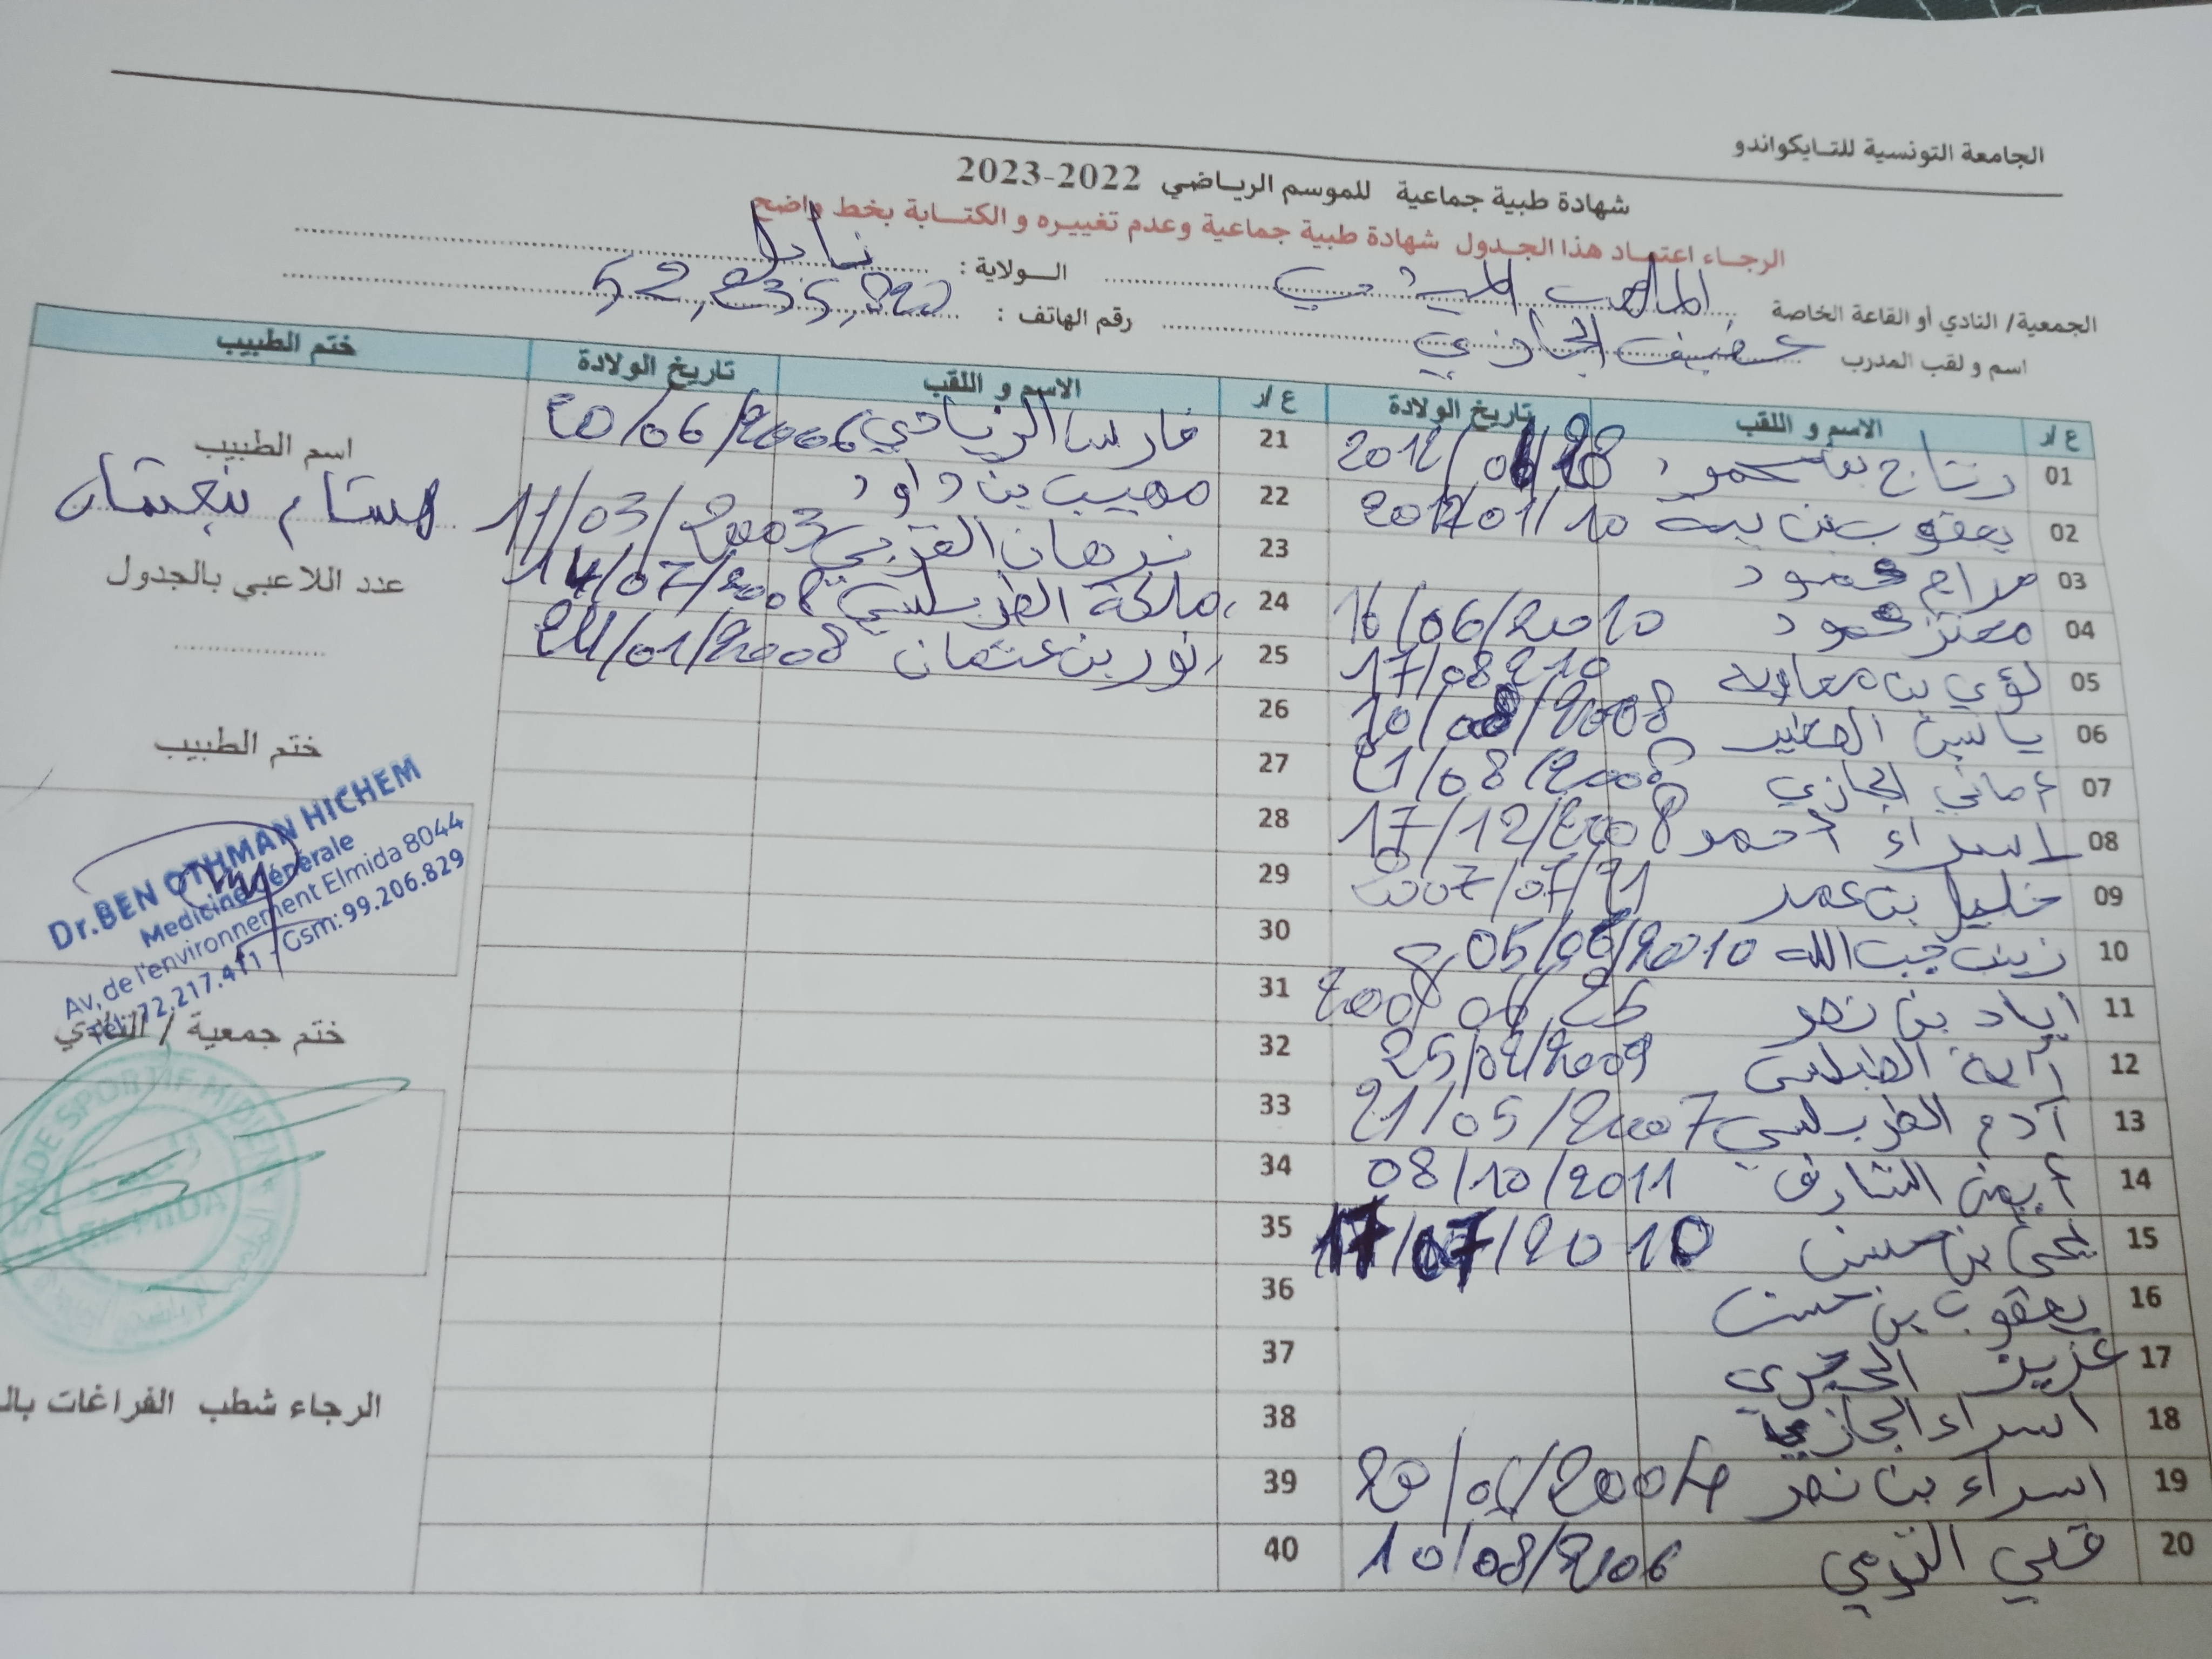 الجامعة التونسية للتايكواندو
شهادة طبية جماعية للموسم الرياضي 2022-2023
الرجاء اعتماد هذا الجدول شهادة طبية جماعية وعدم تغييره و الكتابة بخط واضح
الجمعية/ النادي أو القاعة الخاصة الملعب الميدي
الولاية : نابل
اسم و لقب المدرب الحجازي
رقم الهاتف :
ع/ر الاسم و اللقب تاريخ الولادة
01 رتاج بن حمودة
02 يعقوب بن يحي
03 مرام حمود
04 معتز حمود 16/06/2010
05 لؤي بن معاوية 17/08/210
06 ياسين 10/08/2008
07 أماني الحجازي 21/08/2008
08 إسراء أحمد 17/12/2008
09 خليل بن عمر 2007/07/21
10 زينب جب الله 05/06/2010
11 اياد بن نصر 2008 06 25
12 آية 25/02/2009
13 آدم الطرابلسي 21/05/2007
14 أيمن الشارف 08/10/2011
15 يحي بن حسن 17/07/2010
16 يعقوب بن حسن
17 عزيز
18 اسراء الحجازي
19 اسراء بن نصر
20 10/08/2006
ع/ر الاسم و اللقب تاريخ الولادة
21 فارس الزيادي 20/06/2006
22 مهيب بن داود
23 نرهان القزبي 11/03/2003
24 ملكة الطرابلسي 14/07/2008
25 نور بن عثمان 24/01/2008
26
27
28
29
30
31
32
33
34
35
36
37
38
39
40
ختم الطبيب
اسم الطبيب
هشام بنعثمان
عدد اللاعبي بالجدول
ختم الطبيب
Dr.BEN OTHMAN HICHEM
Medicine Générale
Av, de l'environnement Elmida 8044
Tél: 72.217.411 - Gsm: 99.206.829
ختم جمعية / النادي
STADE SPORTIF MIDIEN
EL MIDA
الرجاء شطب الفراغات